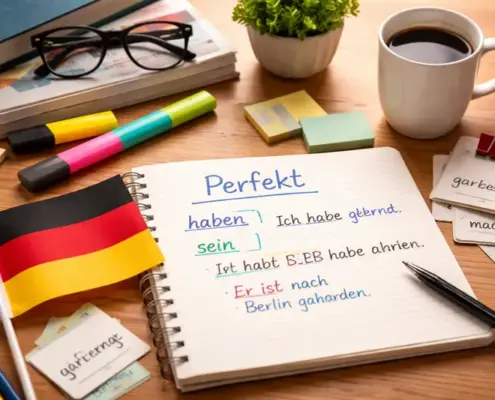 Perfekt
haben Ich habe gełernd.
sein
Iɛt habt E-EB habe ahrien.
Er ist nach
Berlin gaharden.
garbe
mac